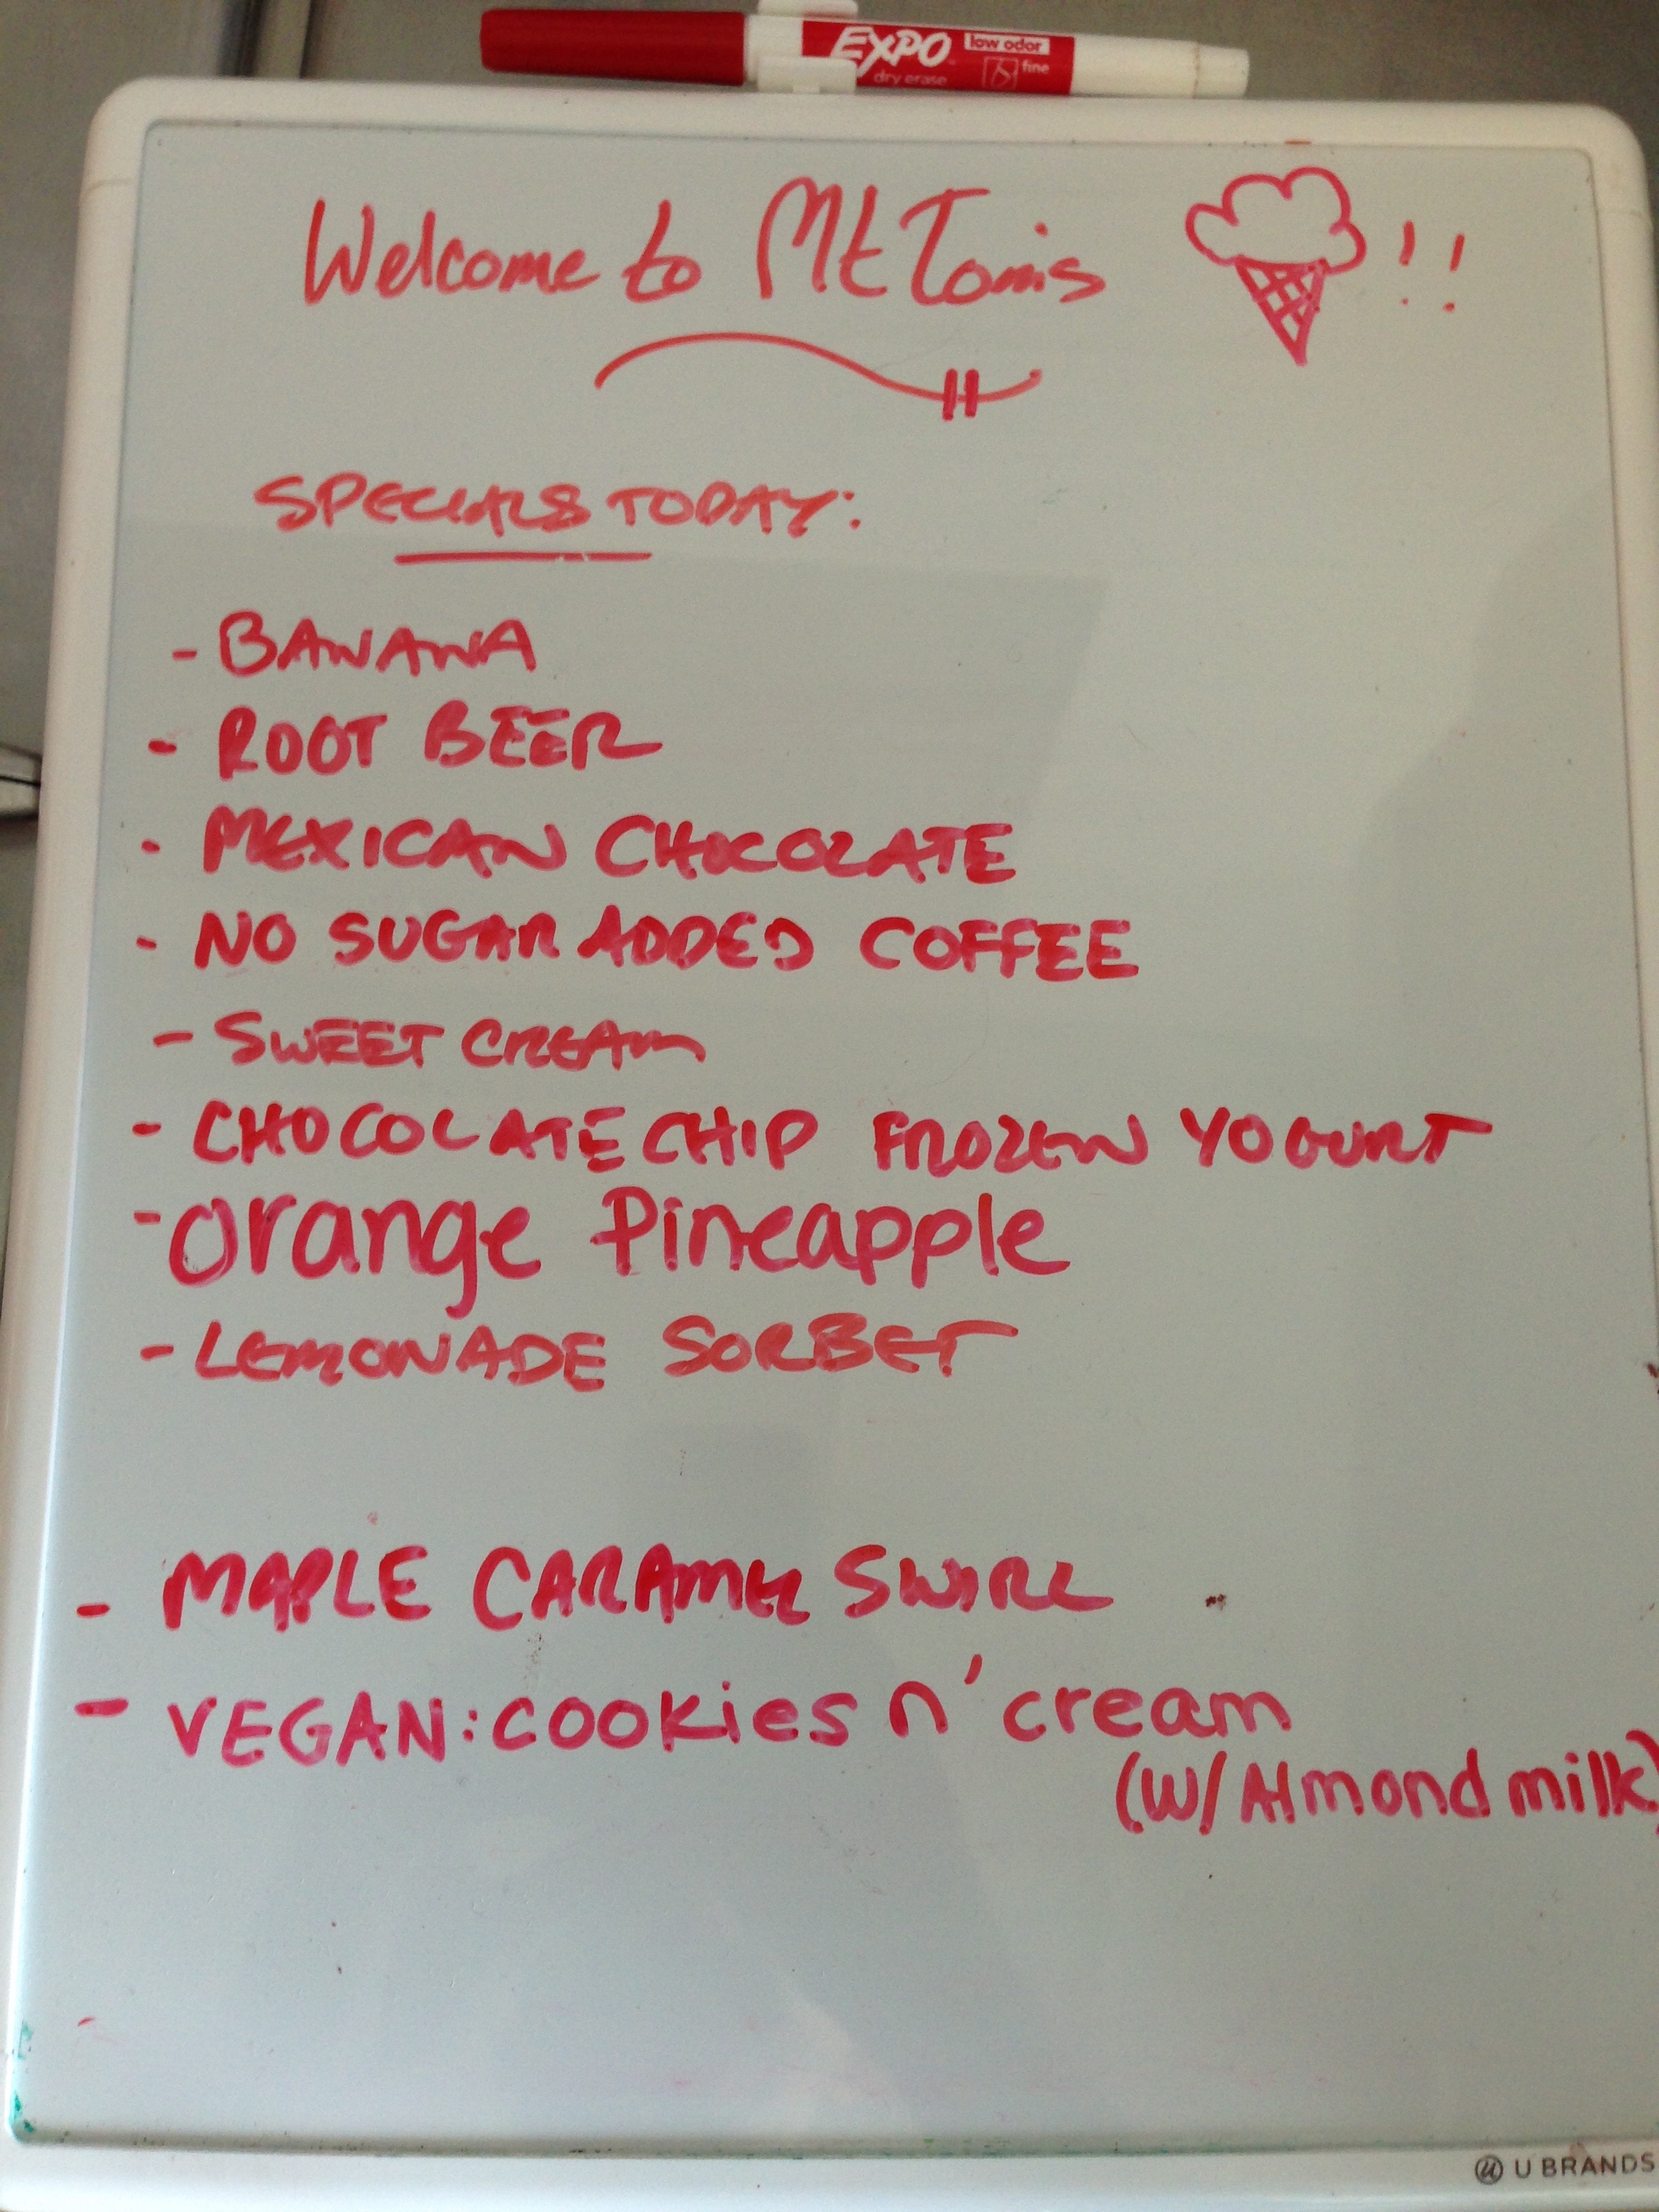 EXPO low odor
dry erase fine
Welcome to Mt Toms !!
SPECIALS TODAY:
- BANANA
- ROOT BEER
- MEXICAN CHOCOLATE
- NO SUGAR ADDED COFFEE
- SWEET CREAM
- CHOCOLATE CHIP FROZEN YOGURT
- Orange Pineapple
- LEMONADE SORBET
- MAPLE CARAMEL SWIRL
- VEGAN: cookies n' cream
(w/ Almond milk)
U BRANDS